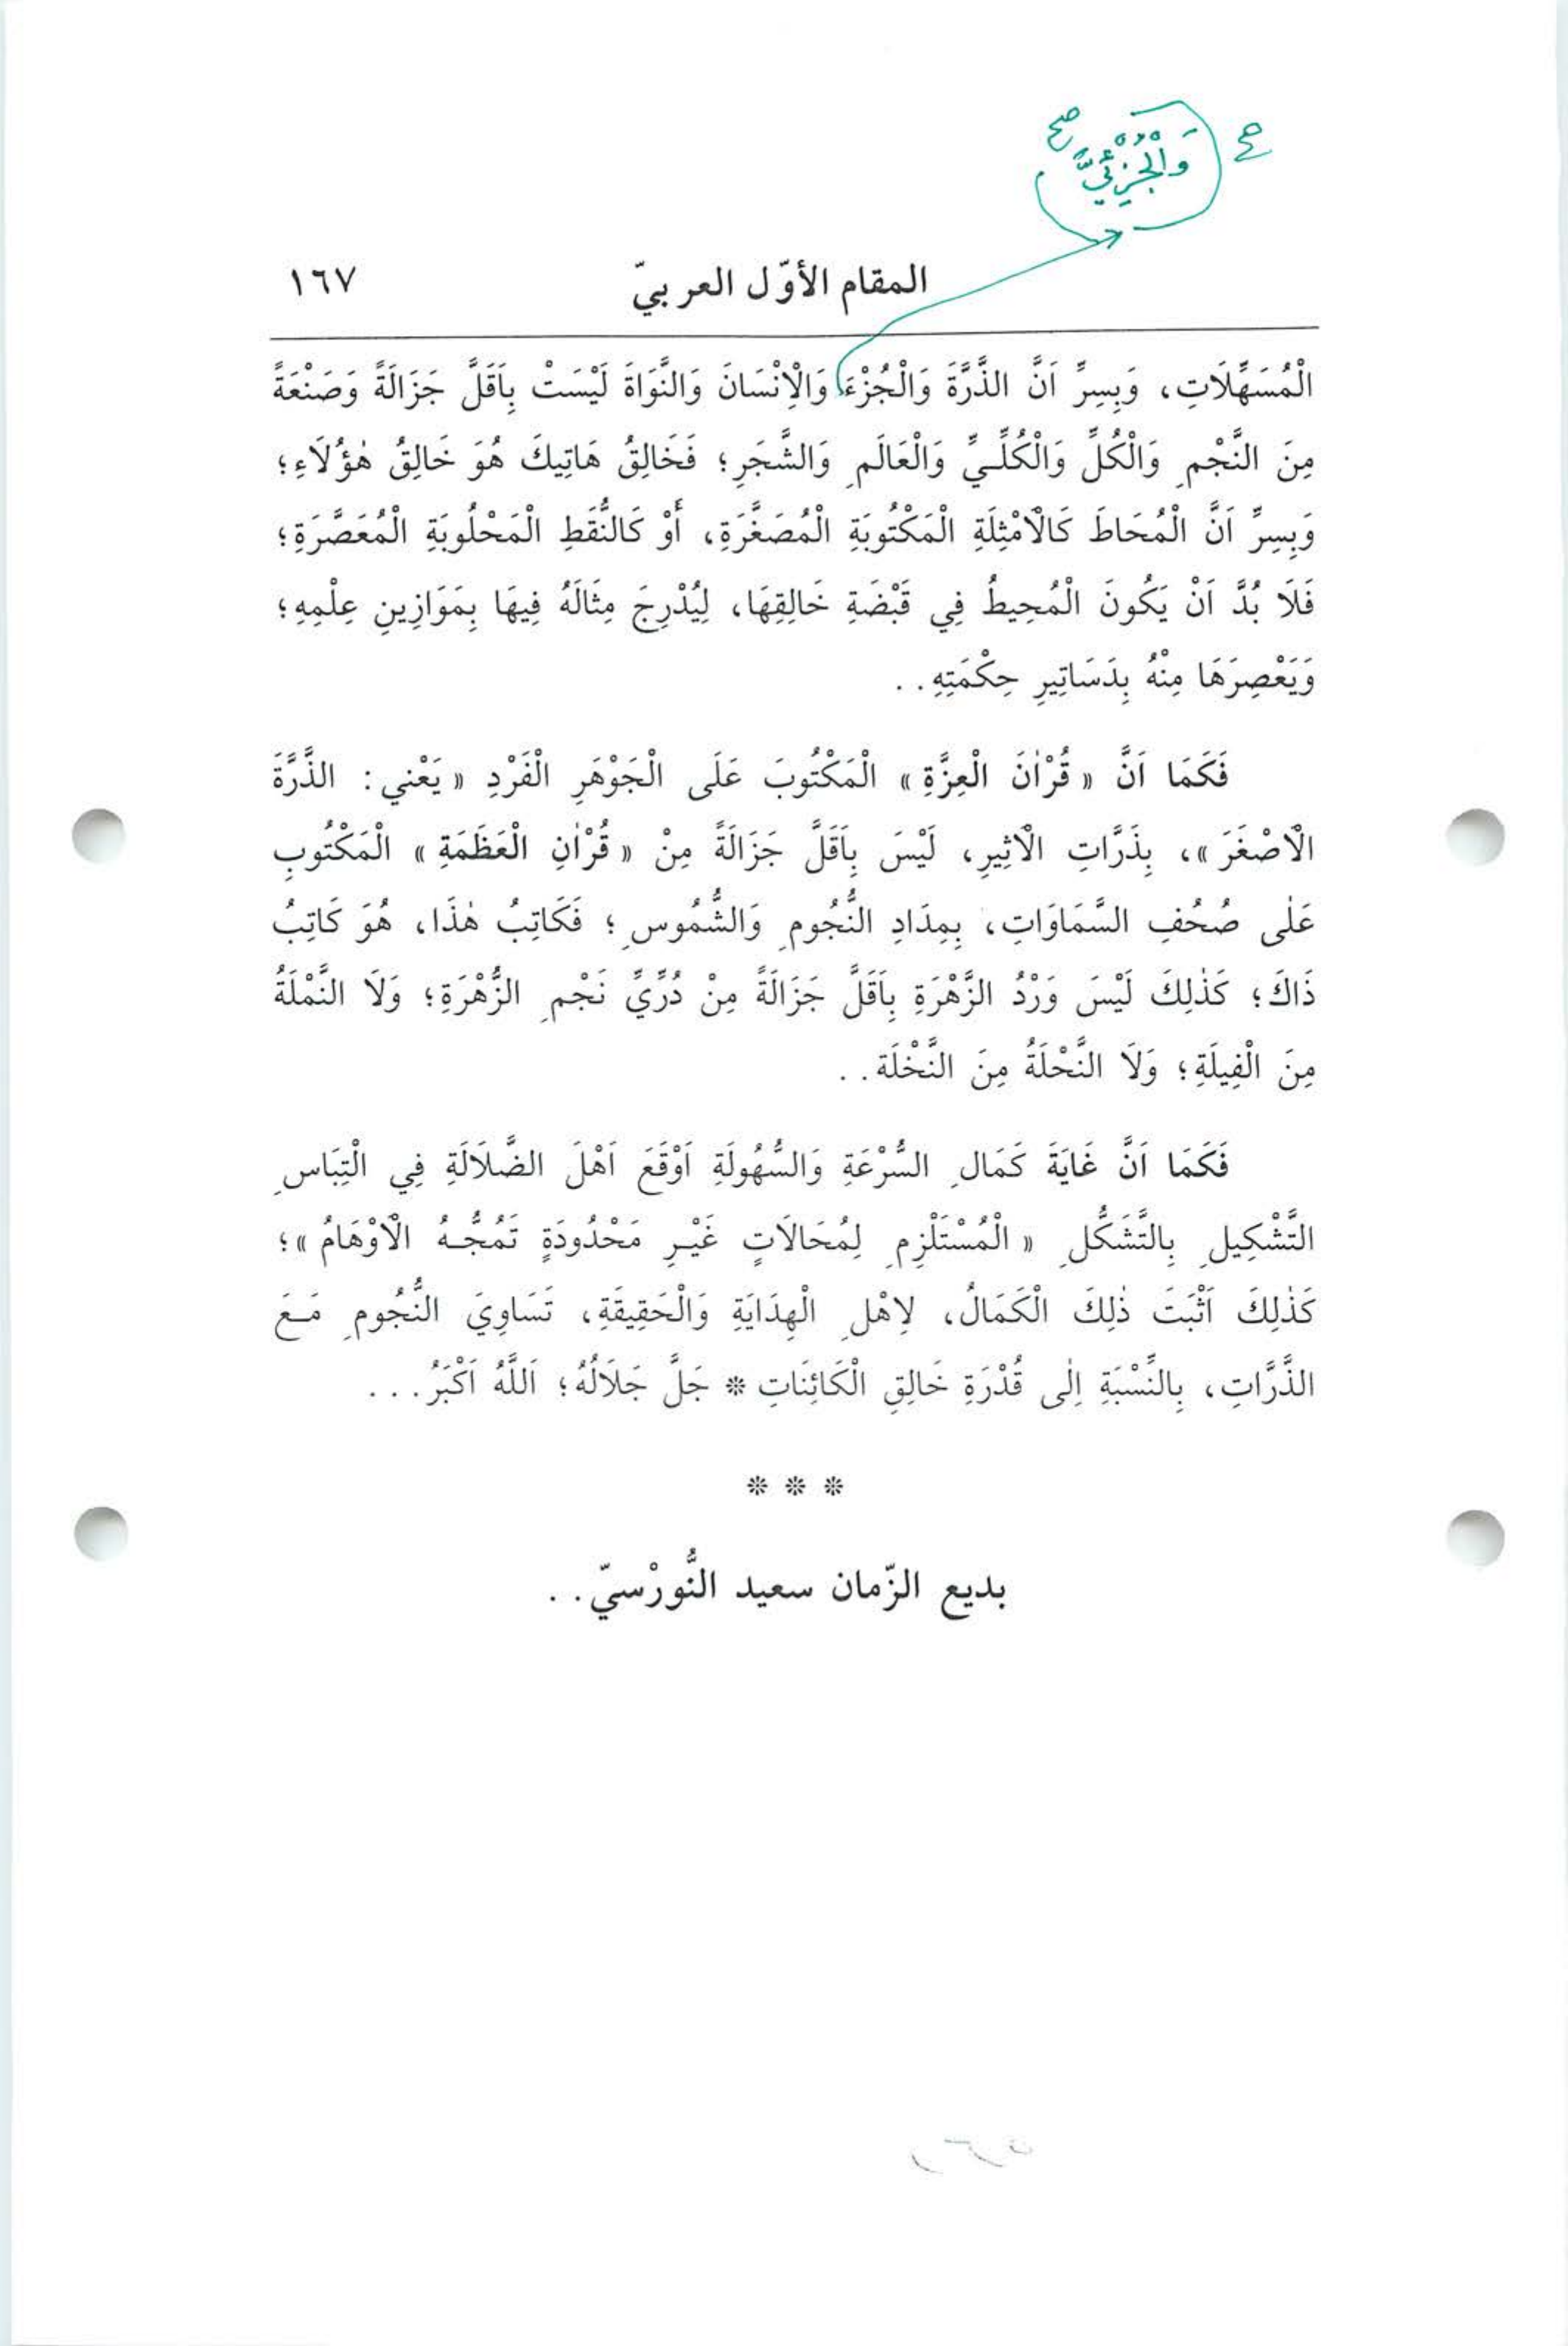 صح وَالْجُزْئِيَّ صح
المقام الأوّل العربيّ ١٦٧
الْمُسَهِّلَاتِ، وَبِسِرِّ اَنَّ الذَّرَّةَ وَالْجُزْءَ وَالْاِنْسَانَ وَالنَّوَاةَ لَيْسَتْ بِاَقَلَّ جَزَالَةً وَصَنْعَةً
مِنَ النَّجْمِ وَالْكُلِّ وَالْكُلِّيِّ وَالْعَالَمِ وَالشَّجَرِ؛ فَخَالِقُ هَاتِيكَ هُوَ خَالِقُ هٰؤُلَاءِ؛
وَبِسِرِّ اَنَّ الْمُحَاطَ كَالْاَمْثِلَةِ الْمَكْتُوبَةِ الْمُصَغَّرَةِ، أَوْ كَالنُّقَطِ الْمَحْلُوبَةِ الْمُعَصَّرَةِ؛
فَلَا بُدَّ اَنْ يَكُونَ الْمُحِيطُ فِي قَبْضَةِ خَالِقِهَا، لِيُدْرِجَ مِثَالَهُ فِيهَا بِمَوَازِينِ عِلْمِهِ؛
وَيَعْصِرَهَا مِنْهُ بِدَسَاتِيرِ حِكْمَتِهِ..
فَكَمَا اَنَّ « قُرْاٰنَ الْعِزَّةِ » الْمَكْتُوبَ عَلَى الْجَوْهَرِ الْفَرْدِ « يَعْنِي: الذَّرَّةَ
الْاَصْغَرَ »، بِذَرَّاتِ الْاَثِيرِ، لَيْسَ بِاَقَلَّ جَزَالَةً مِنْ « قُرْاٰنِ الْعَظَمَةِ » الْمَكْتُوبِ
عَلٰى صُحُفِ السَّمَاوَاتِ، بِمِدَادِ النُّجُومِ وَالشُّمُوسِ؛ فَكَاتِبُ هٰذَا، هُوَ كَاتِبُ
ذَاكَ؛ كَذٰلِكَ لَيْسَ وَرْدُ الزَّهْرَةِ بِاَقَلَّ جَزَالَةً مِنْ دُرِّيِّ نَجْمِ الزُّهْرَةِ؛ وَلَا النَّمْلَةُ
مِنَ الْفِيلَةِ؛ وَلَا النَّحْلَةُ مِنَ النَّخْلَة..
فَكَمَا اَنَّ غَايَةَ كَمَالِ السُّرْعَةِ وَالسُّهُولَةِ اَوْقَعَ اَهْلَ الضَّلَالَةِ فِي الْتِبَاسِ
التَّشْكِيلِ بِالتَّشَكُّلِ « الْمُسْتَلْزِمِ لِمُحَالَاتٍ غَيْرِ مَحْدُودَةٍ تَمُجُّهُ الْاَوْهَامُ »؛
كَذٰلِكَ اَثْبَتَ ذٰلِكَ الْكَمَالُ، لِاَهْلِ الْهِدَايَةِ وَالْحَقِيقَةِ، تَسَاوِيَ النُّجُومِ مَعَ
الذَّرَّاتِ، بِالنِّسْبَةِ اِلٰى قُدْرَةِ خَالِقِ الْكَائِنَاتِ * جَلَّ جَلَالُهُ؛ اَللّٰهُ اَكْبَرُ...
* * *
بديع الزّمان سعيد النُّورْسيّ..